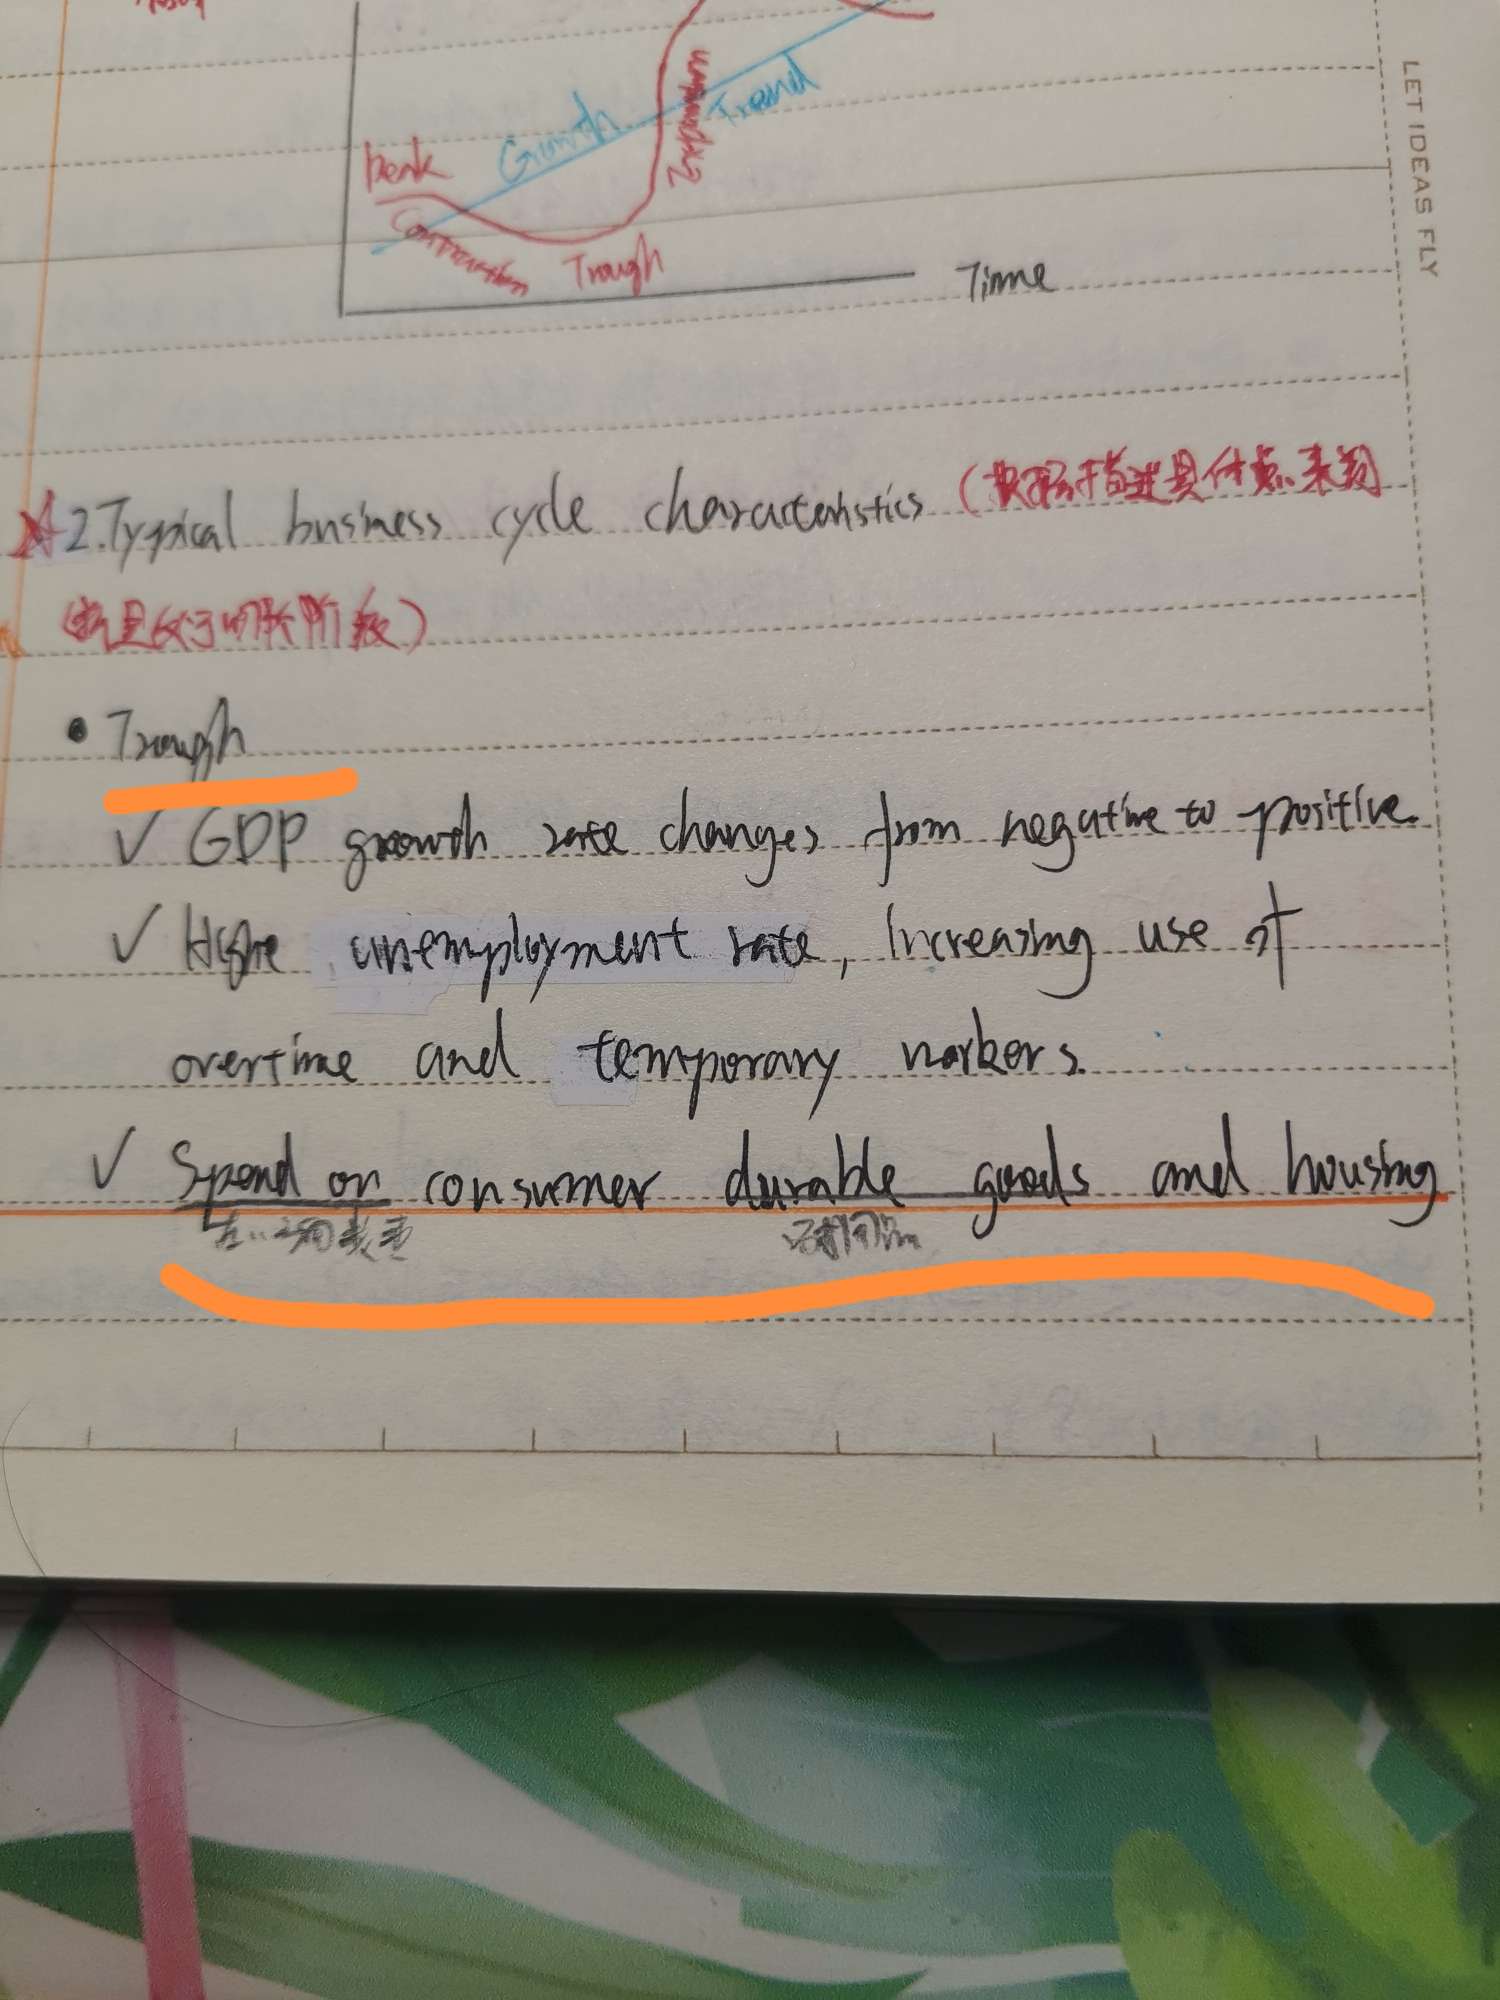 Peak
Growth
Trend
Contraction
Trough
Time
LET IDEAS FLY
2. Typical business cycle characteristics (根据描述具体点来判
断是处于何阶段)
• Trough
✓ GDP growth rate changes from negative to positive.
✓ Highe unemployment rate, Increasing use of
overtime and temporary workers.
✓ Spend on consumer durable goods and housing
在...方面花费